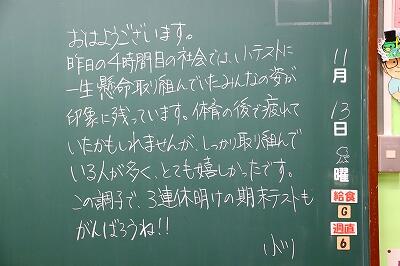 おはようございます。
昨日の4時間目の社会では、小テストに
一生懸命取り組んでいたみんなの姿が
印象に残っています。体育の後で疲れて
いたかもしれませんが、しっかり取り組んで
いる人が多く、とても嬉しかったです。
この調子で、3連休明けの期末テストも
がんばろうね!!
小川
11
月
13
日
曜
給食
G
週直
6